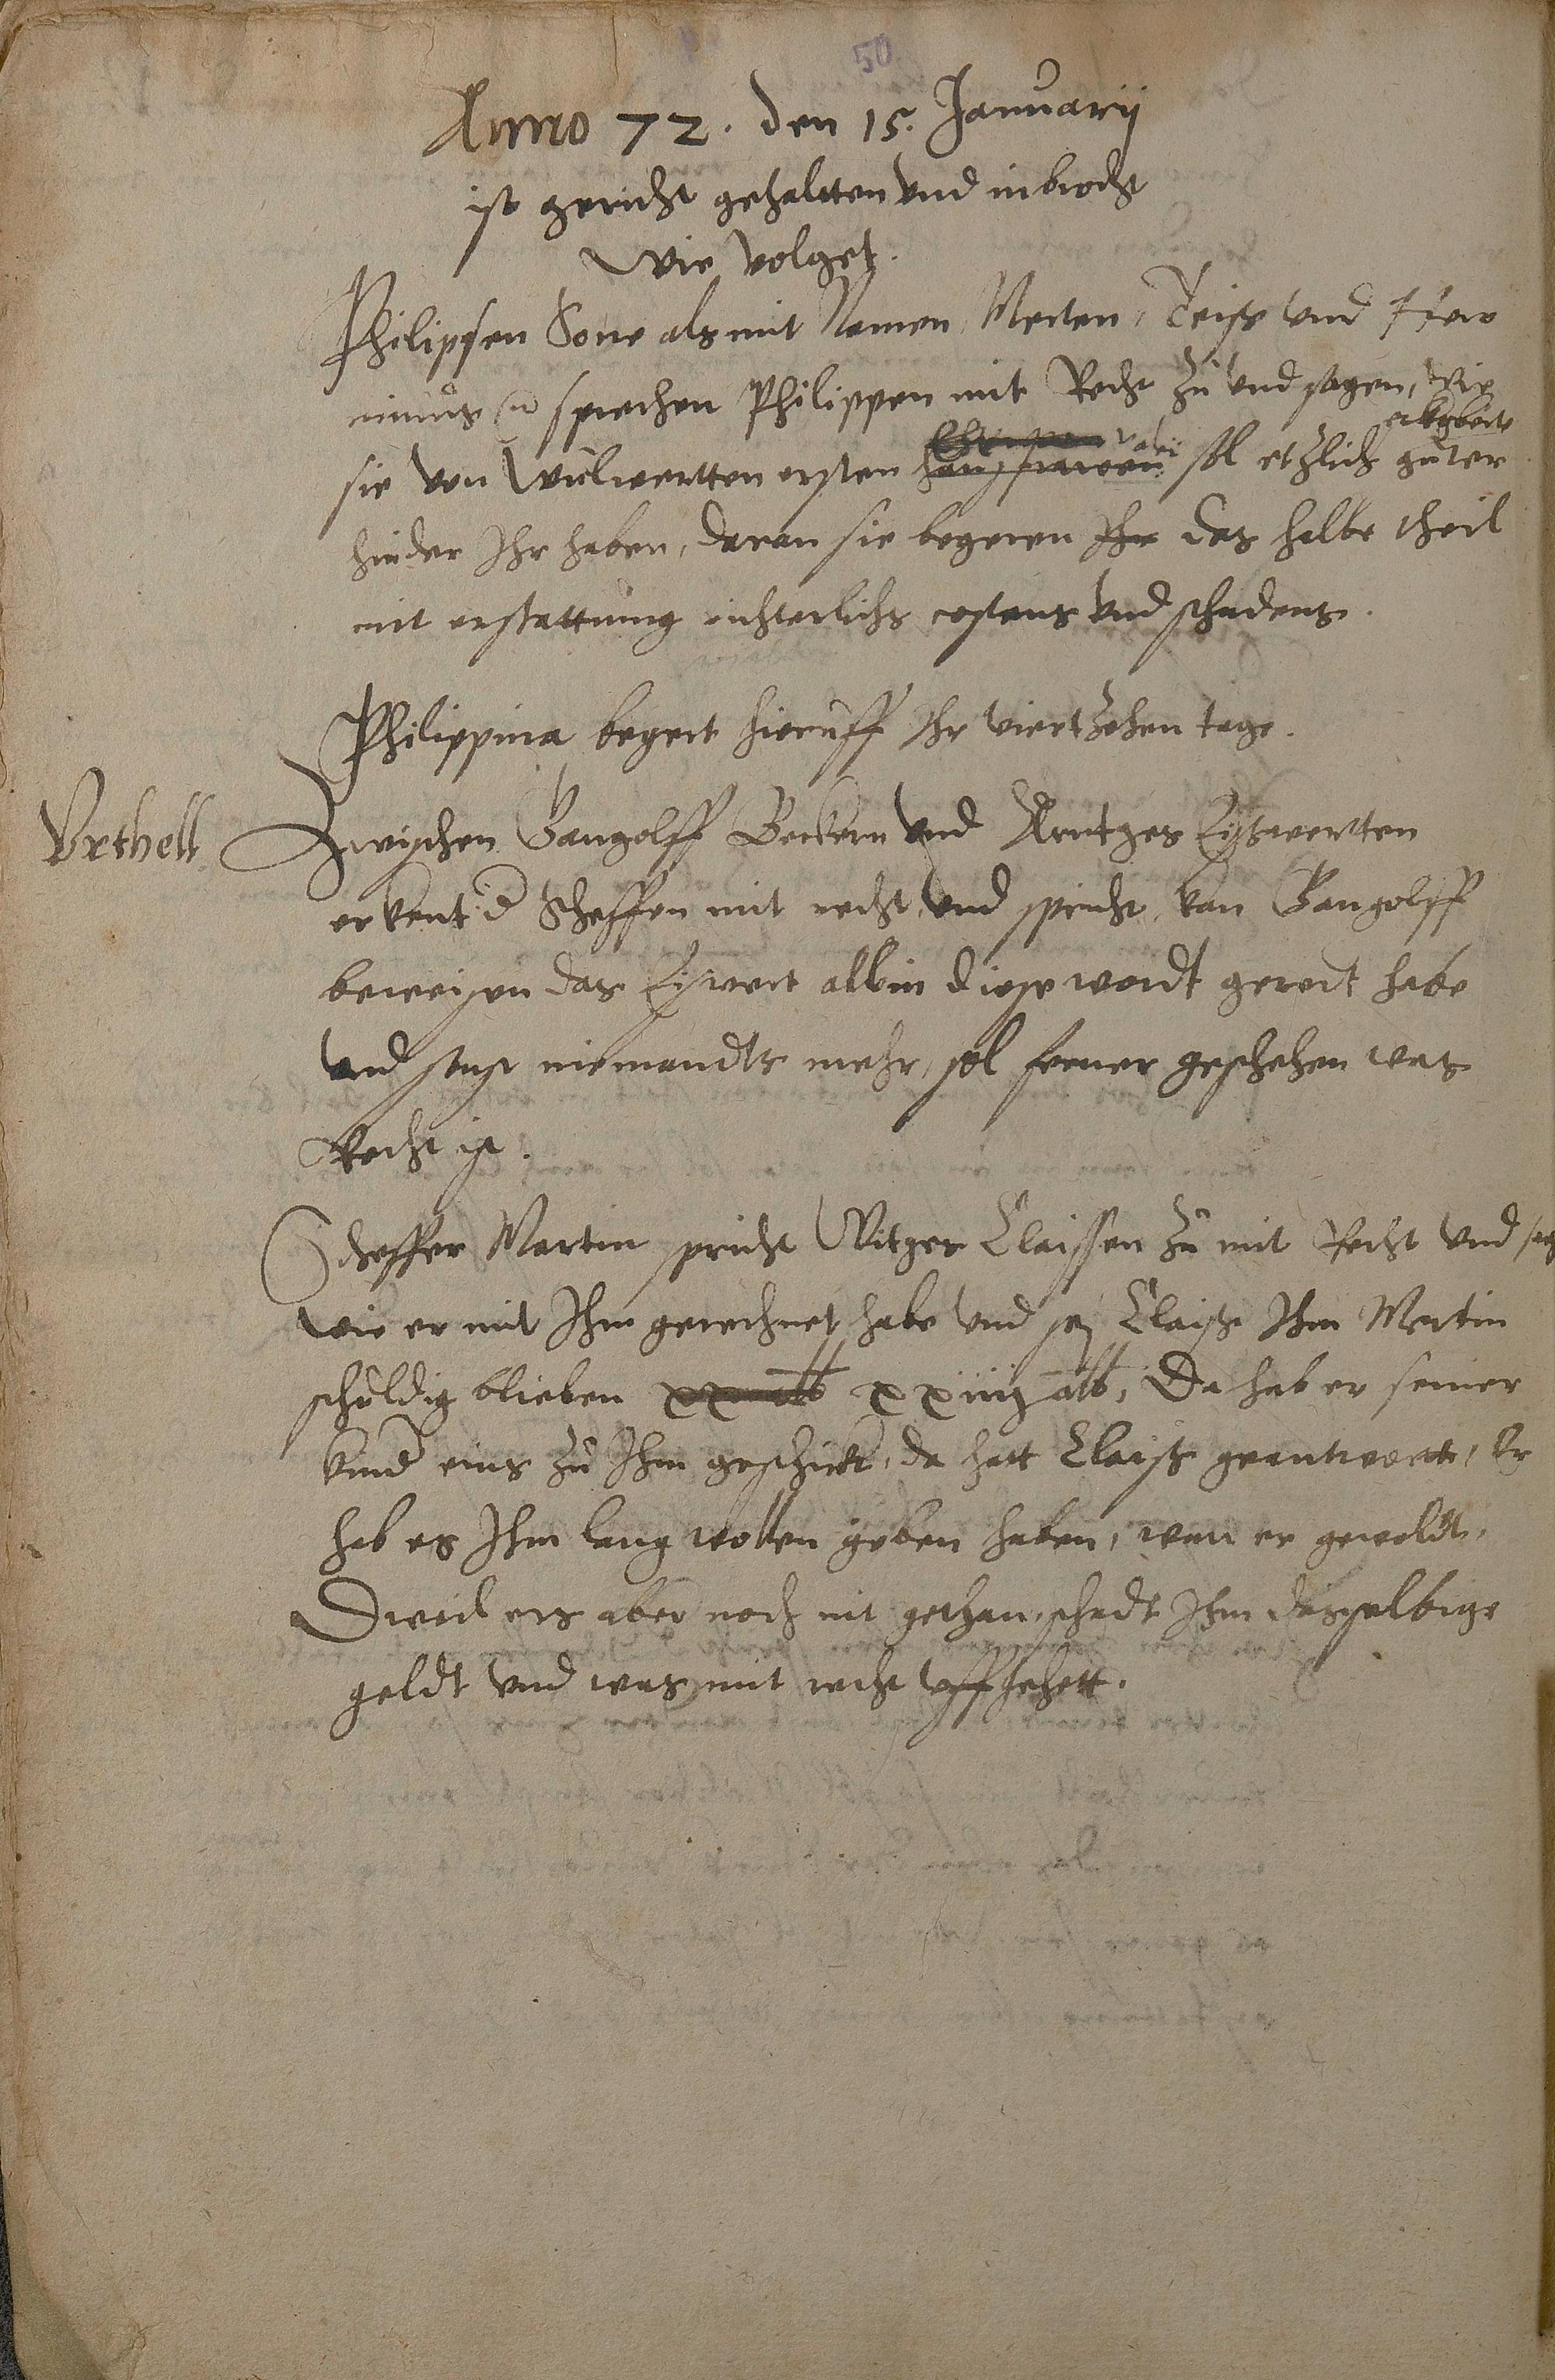 50
Anno 72. den 15. Januarij
ist gericht gehaltten vnd inbracht
wie volget.
Philipsen Sone als mit Namen, Merten, Theiß vnd
sprechen Philippen mit Recht zu vnd sagen, wie
sie von ersten sol etzlich guter
hinder Ihr haben, daran sie begeren Ihr das halbe theil
mit erstattung richterlichs costens vnd schadens.
Philippina begert hieruff Ihr viertzehen tage.
Vrthell
Zwischen Gangolff Beckern vnd Arntges
erkent d Scheffen mit recht, vnd spricht, kan Gangolff
beweisen das allein diese wordt geredt habe
vnd sonst niemandts mehr, sol ferner geschehen was
Recht ist.
Scheffer Martin spricht Witger Claissen zu mit Recht vnd sag
wie er mit Ihm gerechnet habe vnd sey Claiß Ihm Martin
schuldig blieben xx alb xxiiij alb, Da hab er seiner
kind eins zu Ihm geschickt, da hatt Claiß geantwortt, Er
hab es Ihm lang wollen geben haben, wan er gewoldt,
Dweil ers aber noch nit gethan, schadt Ihm dasselbige
geldt vnd was mit recht vffgehett.